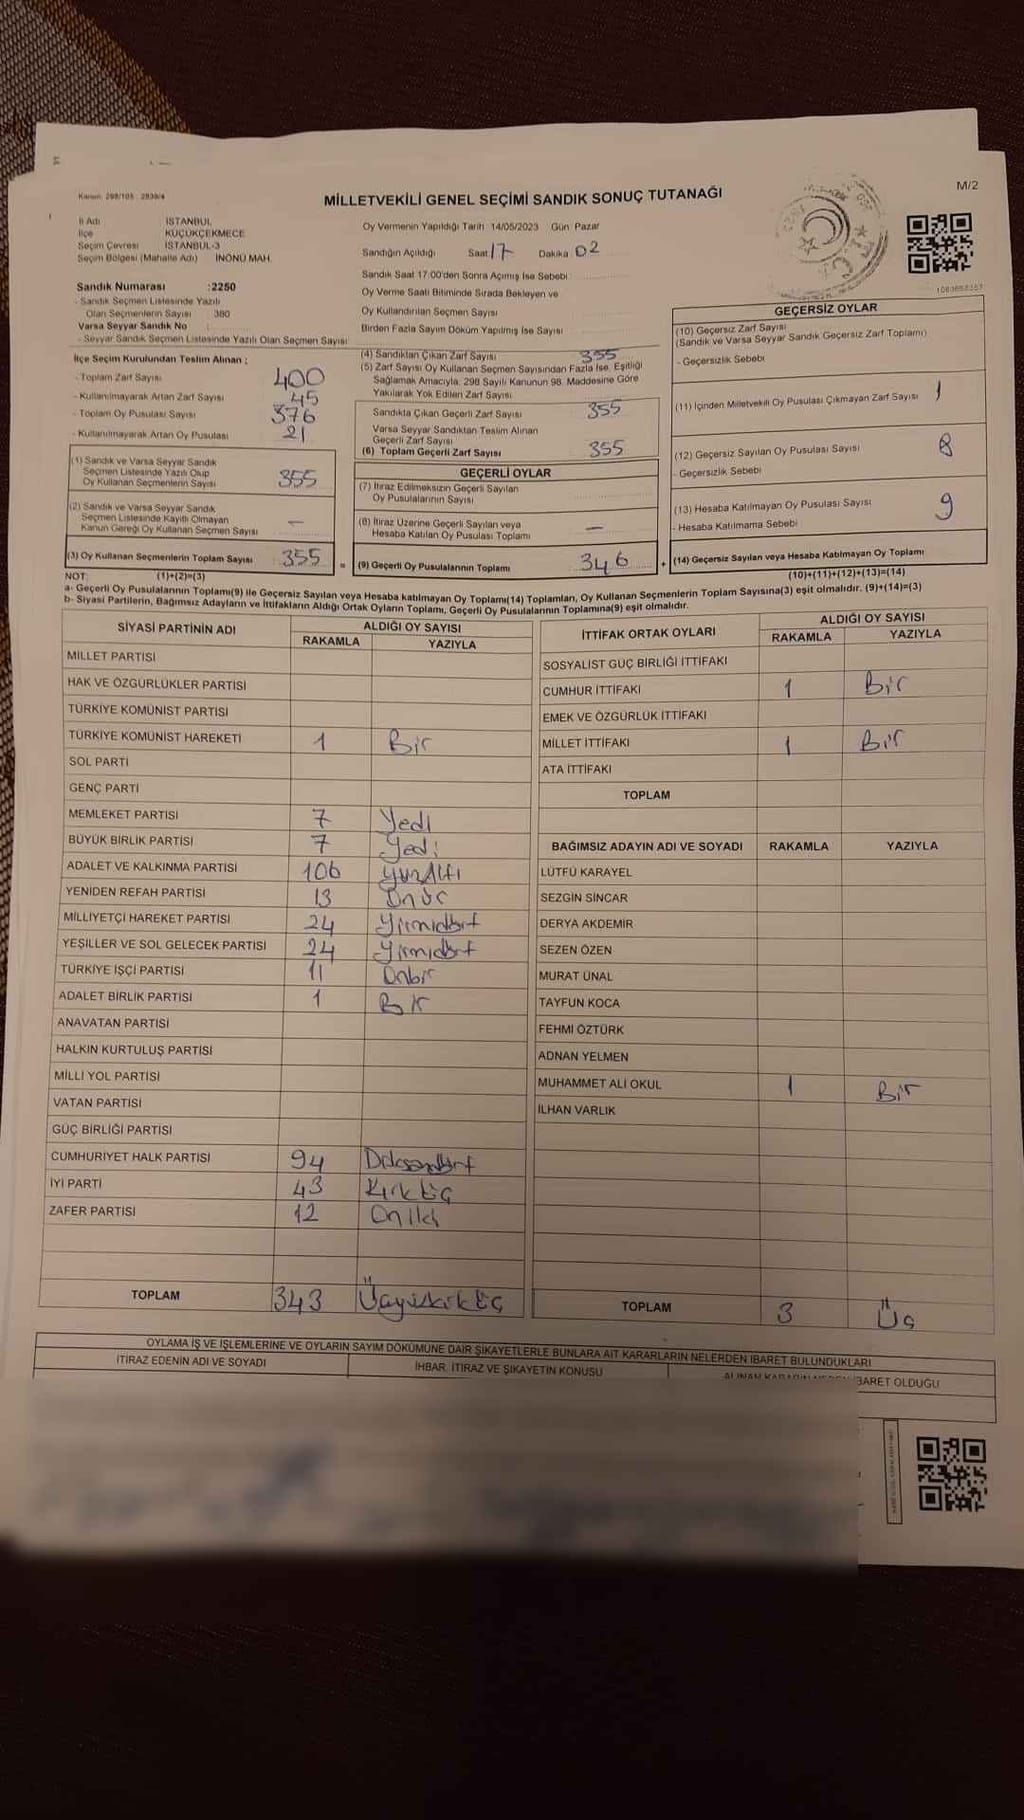 Kanun: 298/105 : 2839/4
MİLLETVEKİLİ GENEL SEÇİMİ SANDIK SONUÇ TUTANAĞI
M/2
İl Adı İSTANBUL
İlçe KÜÇÜKÇEKMECE
Seçim Çevresi İSTANBUL-3
Seçim Bölgesi (Mahalle Adı) İNÖNÜ MAH.
Sandık Numarası :2250
- Sandık Seçmen Listesinde Yazılı
Olan Seçmenlerin Sayısı 380
Varsa Seyyar Sandık No
- Seyyar Sandık Seçmen Listesinde Yazılı Olan Seçmen Sayısı
Oy Vermenin Yapıldığı Tarih 14/05/2023 Gün Pazar
Sandığın Açıldığı Saat 17 Dakika 02
Sandık Saat 17:00'den Sonra Açımış İse Sebebi
Oy Verme Saati Bitiminde Sırada Bekleyen ve
Oy Kullandırılan Seçmen Sayısı
Birden Fazla Sayım Döküm Yapılmış İse Sayısı
İlçe Seçim Kurulundan Teslim Alınan ;
- Toplam Zarf Sayısı 400
- Kullanılmayarak Artan Zarf Sayısı 45
- Toplam Oy Pusulası Sayısı 376
- Kullanılmayarak Artan Oy Pusulası 21
(1) Sandık ve Varsa Seyyar Sandık
Seçmen Listesinde Yazılı Olup
Oy Kullanan Seçmenlerin Sayısı 355
(2) Sandık ve Varsa Seyyar Sandık
Seçmen Listesinde Kayıtlı Olmayan
Kanun Gereği Oy Kullanan Seçmen Sayısı –
(3) Oy Kullanan Seçmenlerin Toplam Sayısı 355
(4) Sandıktan Çıkan Zarf Sayısı 355
(5) Zarf Sayısı Oy Kullanan Seçmen Sayısından Fazla İse, Eşitliği
Sağlamak Amacıyla, 298 Sayılı Kanunun 98. Maddesine Göre
Yakılarak Yok Edilen Zarf Sayısı
Sandıkta Çıkan Geçerli Zarf Sayısı 355
Varsa Seyyar Sandıktan Teslim Alınan
Geçerli Zarf Sayısı
(6) Toplam Geçerli Zarf Sayısı 355
GEÇERLİ OYLAR
(7) İtiraz Edilmeksizin Geçerli Sayılan
Oy Pusulalarının Sayısı
(8) İtiraz Üzerine Geçerli Sayılan veya
Hesaba Katılan Oy Pusulası Toplamı –
= (9) Geçerli Oy Pusulalarının Toplamı 346
GEÇERSİZ OYLAR
(10) Geçersiz Zarf Sayısı
(Sandık ve Varsa Seyyar Sandık Geçersiz Zarf Toplamı)
- Geçersizlik Sebebi
(11) İçinden Milletvekili Oy Pusulası Çıkmayan Zarf Sayısı 1
(12) Geçersiz Sayılan Oy Pusulası Sayısı 8
- Geçersizlik Sebebi
(13) Hesaba Katılmayan Oy Pusulası Sayısı 9
- Hesaba Katılmama Sebebi
+ (14) Geçersiz Sayılan veya Hesaba Katılmayan Oy Toplamı
NOT: (1)+(2)=(3) (10)+(11)+(12)+(13)=(14)
a- Geçerli Oy Pusulalarının Toplamı(9) ile Geçersiz Sayılan veya Hesaba katılmayan Oy Toplamı(14) Toplamları, Oy Kullanan Seçmenlerin Toplam Sayısına(3) eşit olmalıdır. (9)+(14)=(3)
b- Siyasi Partilerin, Bağımsız Adayların ve İttifakların Aldığı Ortak Oyların Toplamı, Geçerli Oy Pusulalarının Toplamına(9) eşit olmalıdır.
SİYASİ PARTİNİN ADI ALDIĞI OY SAYISI
RAKAMLA YAZIYLA
MİLLET PARTİSİ
HAK VE ÖZGÜRLÜKLER PARTİSİ
TÜRKİYE KOMÜNİST PARTİSİ
TÜRKİYE KOMÜNİST HAREKETİ 1 Bir
SOL PARTİ
GENÇ PARTİ
MEMLEKET PARTİSİ 7 Yedi
BÜYÜK BİRLİK PARTİSİ 7 Yedi
ADALET VE KALKINMA PARTİSİ 106 yüzAltı
YENİDEN REFAH PARTİSİ 13 Onüç
MİLLİYETÇİ HAREKET PARTİSİ 24 Yirmidört
YEŞİLLER VE SOL GELECEK PARTİSİ 24 Yirmidört
TÜRKİYE İŞÇİ PARTİSİ 11 Onbir
ADALET BİRLİK PARTİSİ 1 Bir
ANAVATAN PARTİSİ
HALKIN KURTULUŞ PARTİSİ
MİLLİ YOL PARTİSİ
VATAN PARTİSİ
GÜÇ BİRLİĞİ PARTİSİ
CUMHURİYET HALK PARTİSİ 94 Doksandört
İYİ PARTİ 43 Kırküç
ZAFER PARTİSİ 12 Oniki
TOPLAM 343
İTTİFAK ORTAK OYLARI ALDIĞI OY SAYISI
RAKAMLA YAZIYLA
SOSYALİST GÜÇ BİRLİĞİ İTTİFAKI
CUMHUR İTTİFAKI 1 Bir
EMEK VE ÖZGÜRLÜK İTTİFAKI
MİLLET İTTİFAKI 1 Bir
ATA İTTİFAKI
TOPLAM
BAĞIMSIZ ADAYIN ADI VE SOYADI RAKAMLA YAZIYLA
LÜTFÜ KARAYEL
SEZGİN SİNCAR
DERYA AKDEMİR
SEZEN ÖZEN
MURAT ÜNAL
TAYFUN KOCA
FEHMİ ÖZTÜRK
ADNAN YELMEN
MUHAMMET ALİ OKUL 1 Bir
İLHAN VARLIK
TOPLAM 3 Üç
OYLAMA İŞ VE İŞLEMLERİNE VE OYLARIN SAYIM DÖKÜMÜNE DAİR ŞİKAYETLERLE BUNLARA AİT KARARLARIN NELERDEN İBARET BULUNDUKLARI
İTİRAZ EDENİN ADI VE SOYADI İHBAR, İTİRAZ VE ŞİKAYETİN KONUSU İBARET OLDUĞU